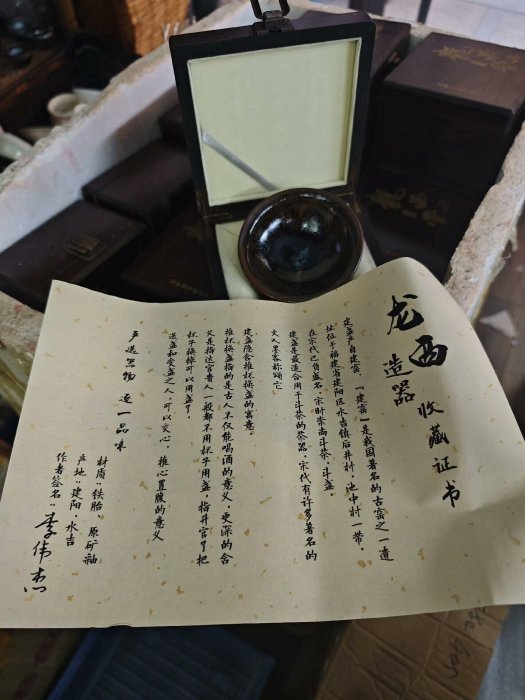 龙西
造器
收藏证书
建盏产自建窑，「建窑」是我国著名的古窑之一遗
址位于福建省建阳区水吉镇后井村，池中村一带。
在宋代已负盛名，宋时崇尚斗茶、斗盏，
建盏是最适合用于斗茶的茶器，宋代有许多著名的
文人墨客称颂它
建盏隐含推杯换盏的寓意，
推杯换盏指的是古人不仅能喝酒的意义，更深的含
义是指达官贵人一般都不用杯子用盏，指升官了把
杯子换掉可以用盏了，
送盏和受盏之人，可以交心，推心置腹的意义
严选器物 逐一品味
材质：铁胎，原矿釉
产地：建阳·水吉
作者签名：李伟杰